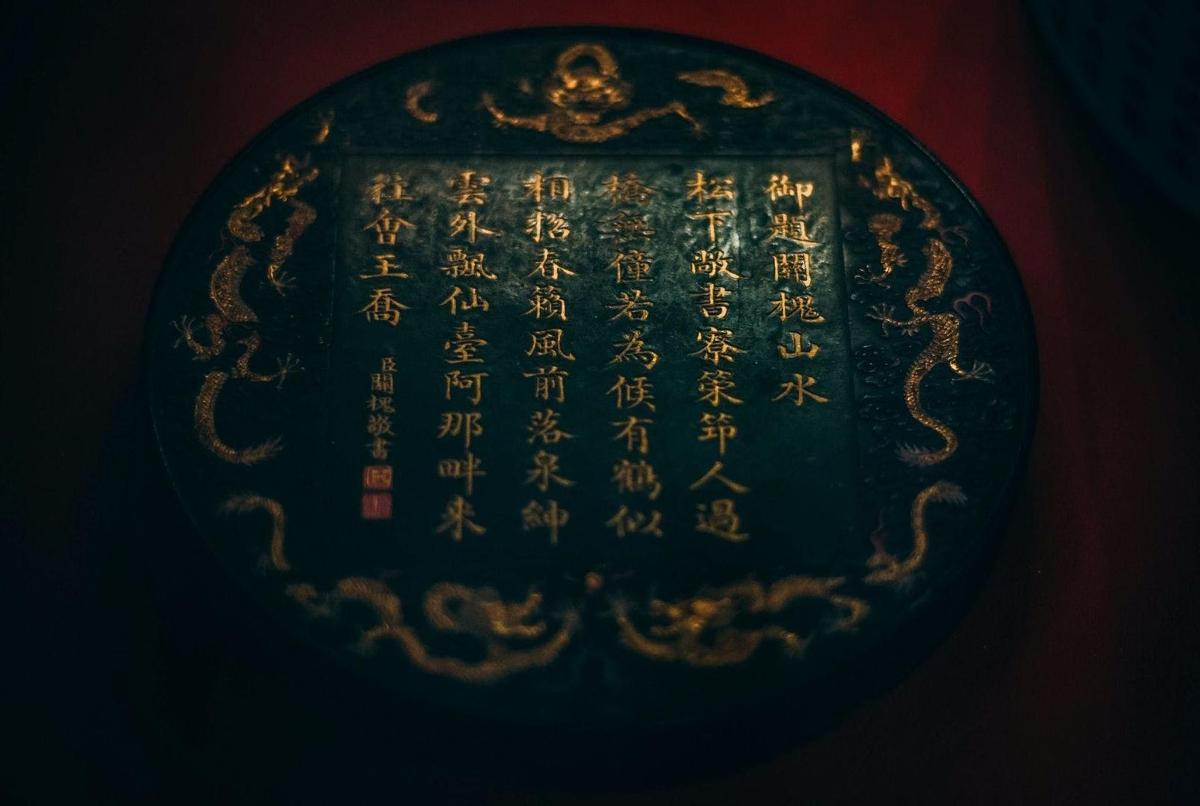 御題關槐山水
松下敞書寮策筇人過
橋無僮若為候有鶴似
相招春籟風前落泉紳
雲外飄仙臺阿那畔來
往會王喬
臣關槐敬書